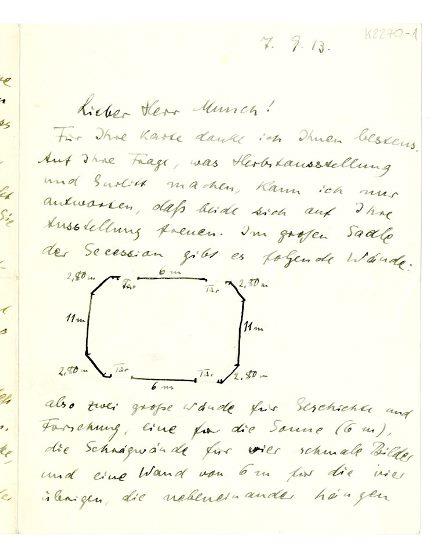 K2270-1
7. 9. 13.
Lieber Herr Munch!
Für Ihre Karte danke ich Ihnen bestens.
Auf Ihre Frage, was Herbstausstellung
und Gurlitt machen, kann ich nur
antworten, daß beide sich auf Ihre
Ausstellung freuen. Im großen Saale
der Secession gibt es folgende Wände:
2,80m Tür 6 m Tür 2,80m
11 m 11 m
2,80m Tür 6 m Tür 2,80m
also zwei große Wände für Geschichte und
Forschung, eine für die Sonne (6 m),
die Schrägwände für vier schmale Bilder
und eine Wand von 6 m für die vier
übrigen, die nebeneinander hängen